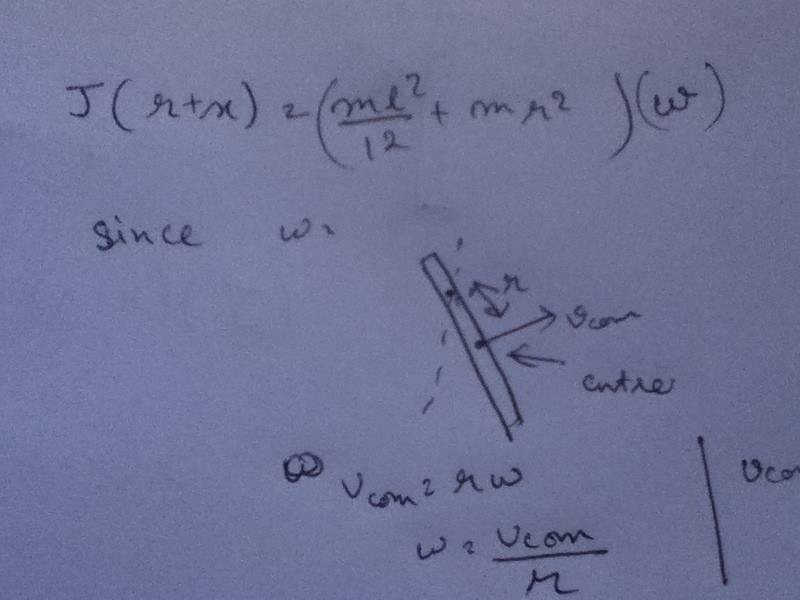 J(r+x) = (ml²/12 + mr²)(w)
since w =
r
vcom
centre
vcom = rw
w = vcom/r
vcom